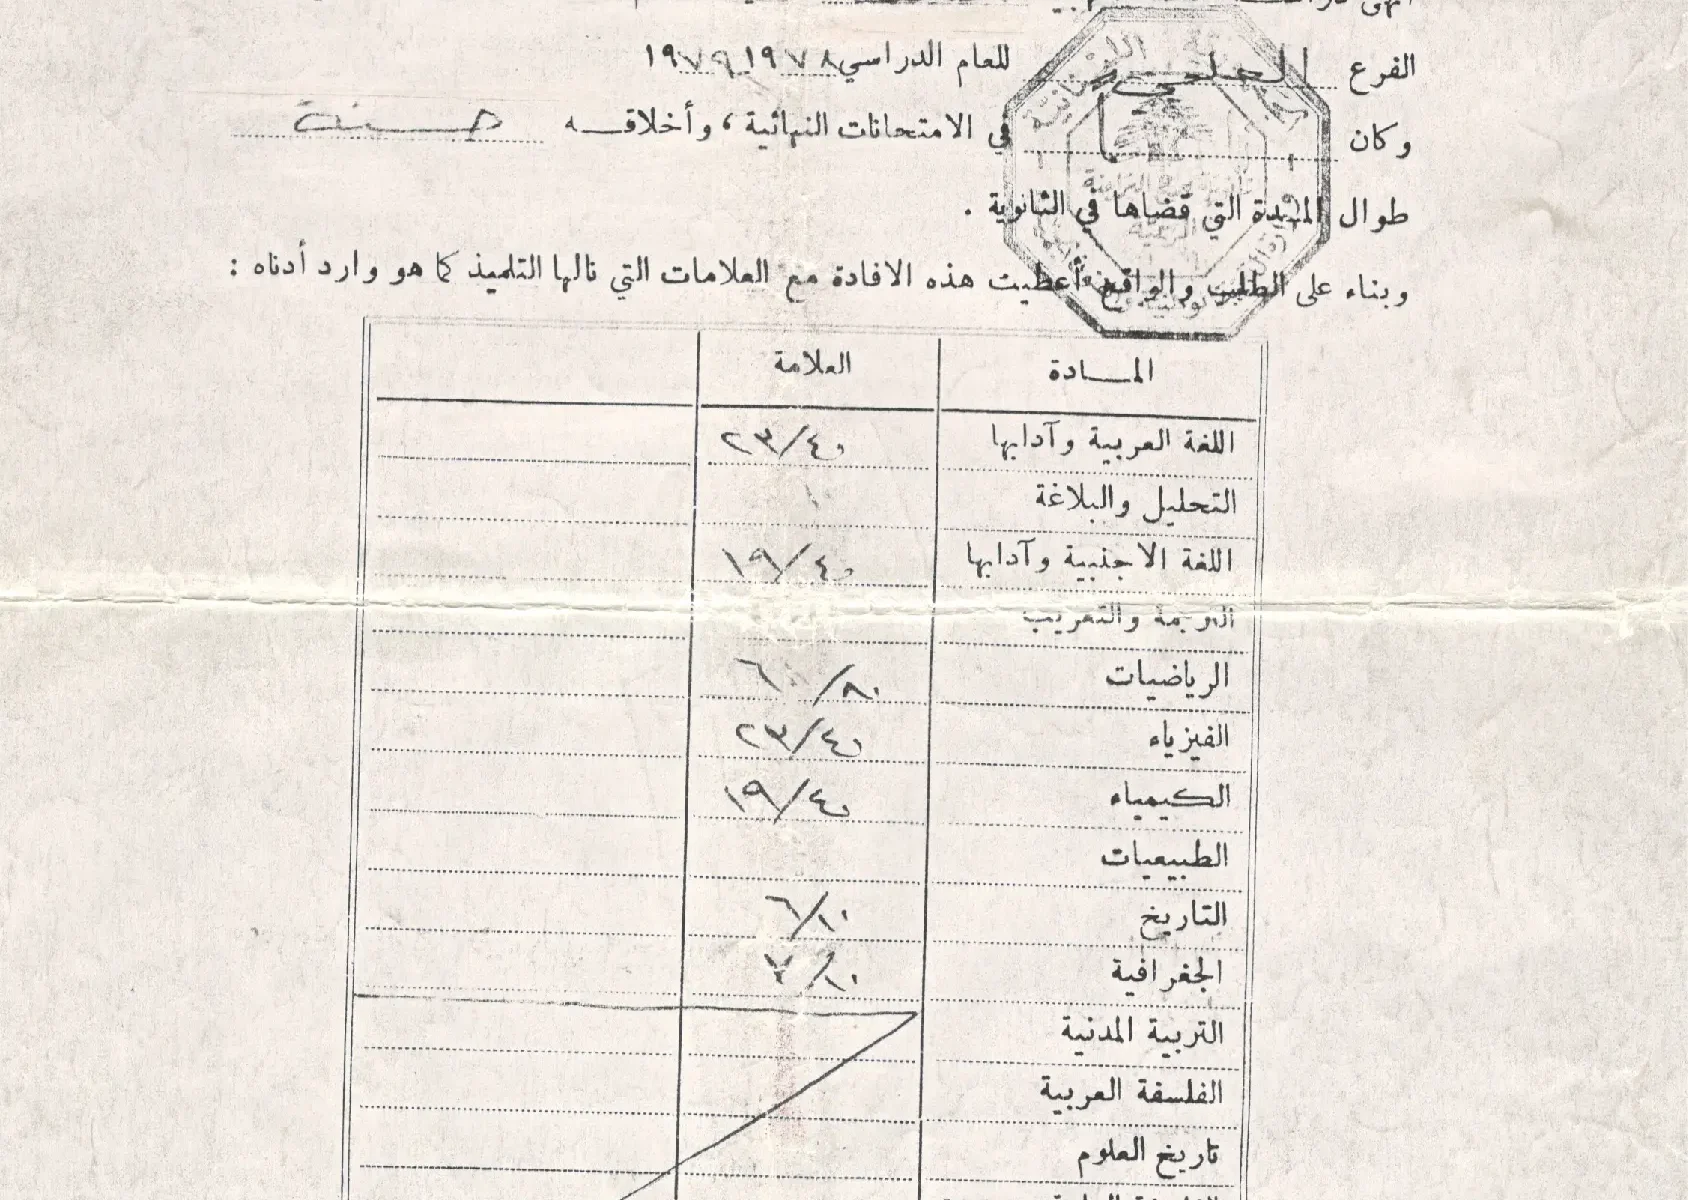 الفرع العلمي للعام الدراسي ١٩٧٨ ١٩٧٩
وكان في الامتحانات النهائية ، وأخلاقـه حسنة
طوال المدة التي قضاها في الثانوية .
وبناء على الطلب والواقع أعطيت هذه الافادة مع العلامات التي نالها التلميذ كما هو وارد أدناه :
المـادة العلامة
اللغة العربية وآدابها ٢٣/٤٠
التحليل والبلاغة
اللغة الاجنبية وآدابها ١٩/٤٠
الترجمة والتعريب
الرياضيات ٦٠/٨٠
الفيزياء ٢٣/٤٠
الكيمياء ١٩/٤٠
الطبيعيات
التاريخ ٦/١٠
الجغرافية ٧/١٠
التربية المدنية
الفلسفة العربية
تاريخ العلوم